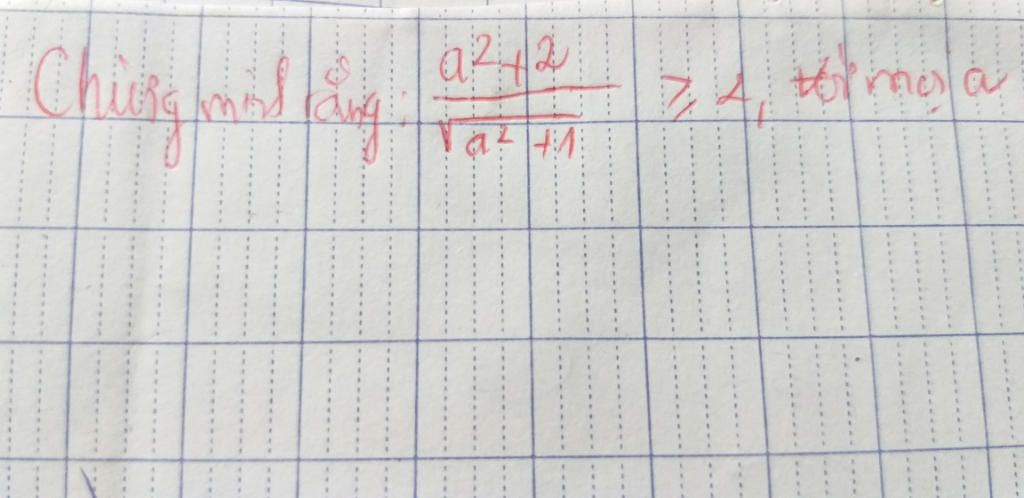 Chứng minh rằng: \frac{a^2+2}{\sqrt{a^2+1}} ≥ 2, với mọi a